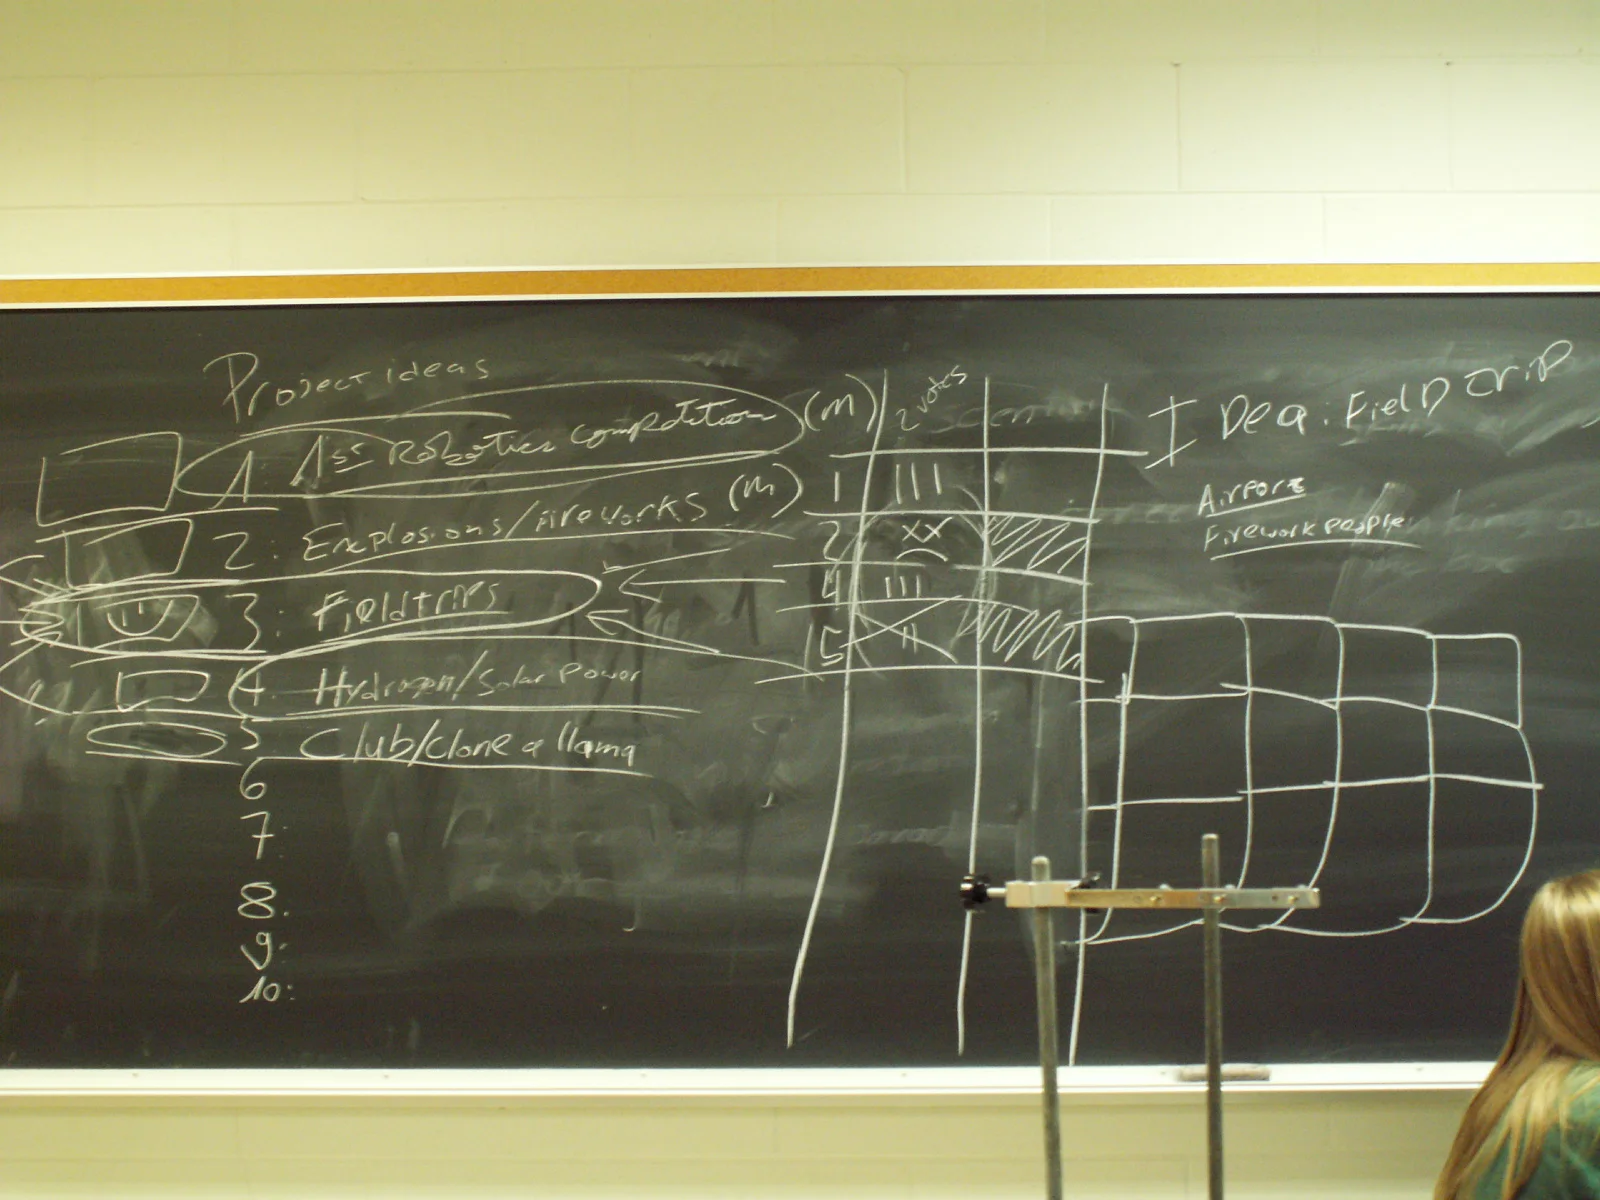 Project ideas
1. 1st Robotics Competition (m)
2. Explosions/fireworks (m)
3. Fieldtrips
4. Hydrogen/Solar Power
5 Club/clone a llama
6
7.
8.
9.
10:
2 votes
1 III
2 XX
4 III
5 II
IDea: FielD trip
Airport
Firework people